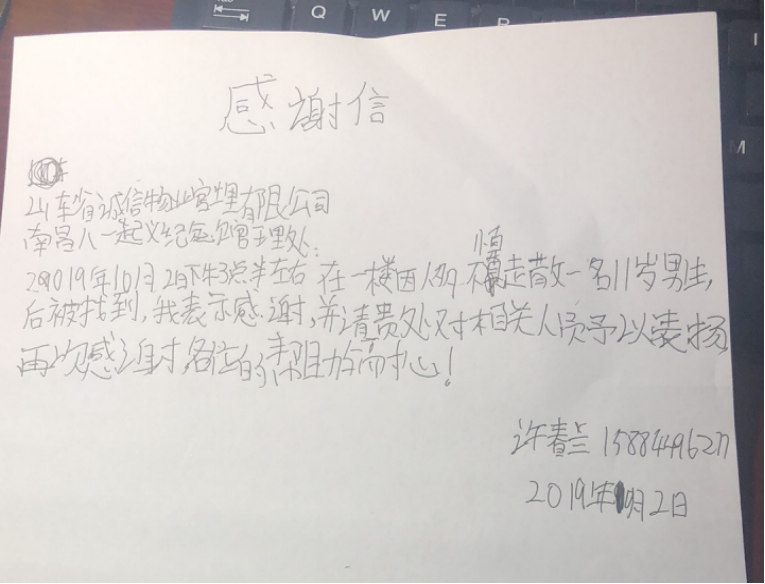 Q W E R
I
M
感谢信
山东省诚信物业管理有限公司
南昌八一起义纪念馆管理处:
2019年10月2日下午3点半左右在一楼因人多不慎走散一名11岁男生,
后被找到,我表示感谢,并请贵处对相关人员予以表扬
再次感谢各位的帮助与关心!
许春兰 15884496271
2019年10月2日